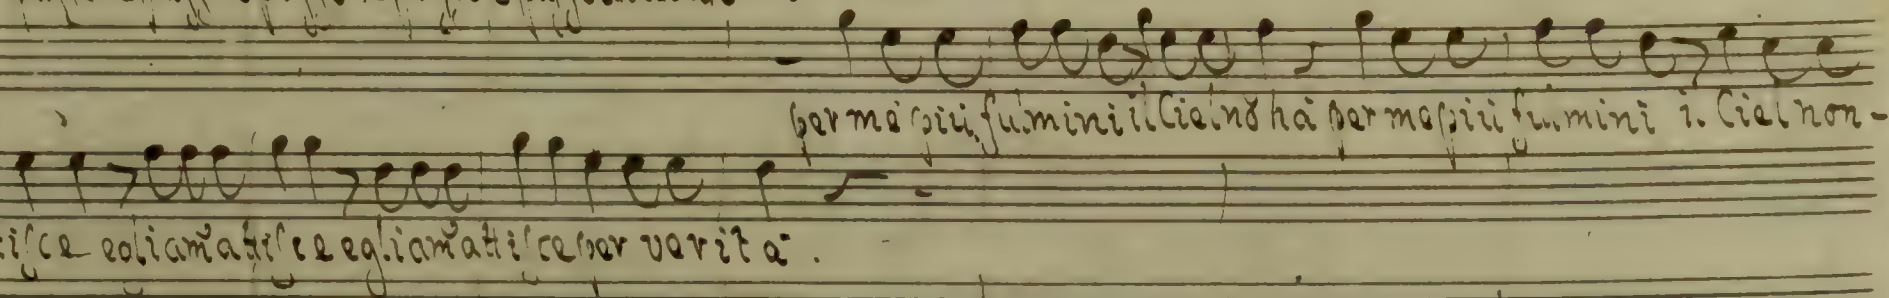 per me piu fulmini il Ciel nõ ha per me piu fulmini il Ciel non-
isce egli am̃attisce egli am̃attisce per verità.